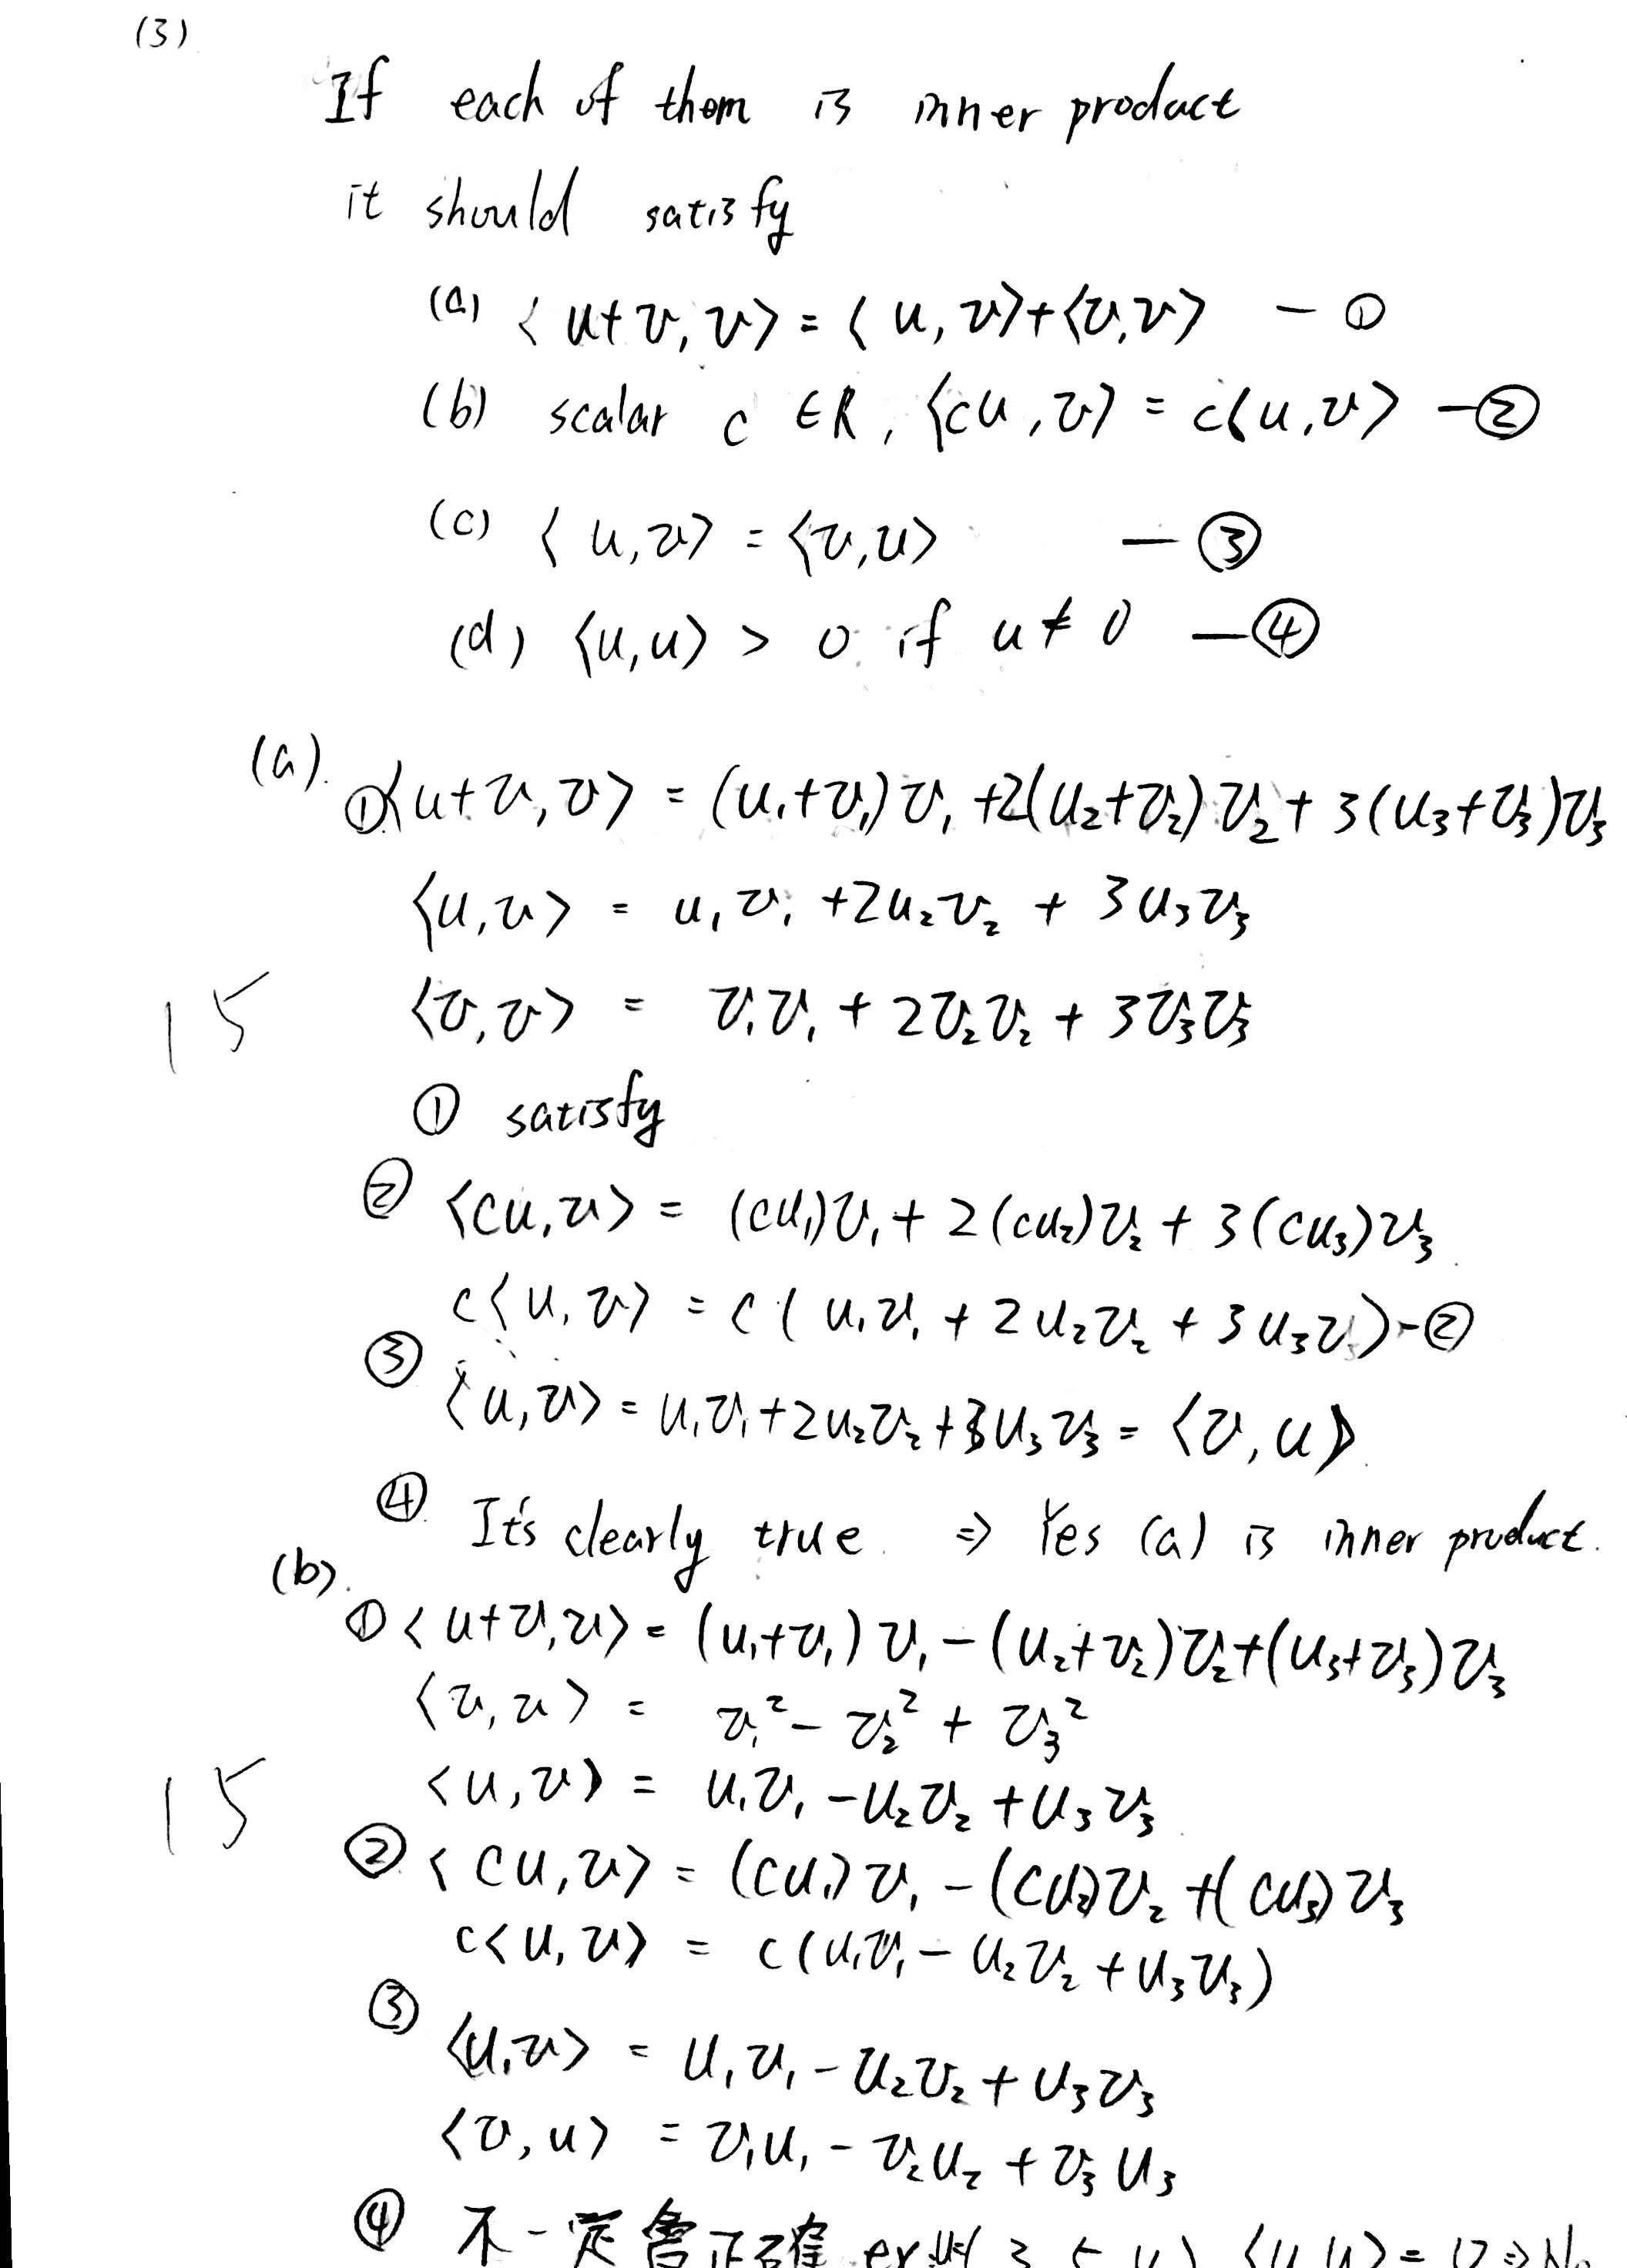 (3)
If each of them is inner product
it should satisfy
(a) ⟨u+v, v⟩ = ⟨u, v⟩+⟨v,v⟩ — ①
(b) scalar c ∈R, ⟨cu, v⟩ = c⟨u, v⟩ — ②
(c) ⟨u, v⟩ = ⟨v,u⟩ — ③
(d) ⟨u,u⟩ > 0 if u ≠ 0 — ④
(a).
①⟨u+v, v⟩ = (u₁+v₁)v₁+2(u₂+v₂)v₂+3(u₃+v₃)v₃
⟨u,v⟩ = u₁v₁ +2u₂v₂ + 3u₃v₃
15
⟨v,v⟩ = v₁v₁ + 2v₂v₂ + 3v₃v₃
① satisfy
② ⟨cu,v⟩ = (cu₁)v₁+ 2(cu₂)v₂ + 3(cu₃)v₃
c⟨u, v⟩ = c(u₁v₁ + 2u₂v₂ + 3u₃v₃) -②
③ ⟨u,v⟩ = u₁v₁+2u₂v₂+3u₃v₃ = ⟨v,u⟩
④. It's clearly true. ⇒ Yes (a) is inner product.
(b).
①⟨u+v,v⟩= (u₁+v₁)v₁-(u₂+v₂)v₂+(u₃+v₃)v₃
⟨v,v⟩ = v₁²- v₂² + v₃²
15
⟨u,v⟩ = u₁v₁ -u₂v₂ +u₃v₃
② ⟨cu,v⟩ = (cu₁)v₁ -(cu₂)v₂ +(cu₃)v₃
c⟨u,v⟩ = c(u₁v₁- u₂v₂ +u₃v₃)
③ ⟨u,v⟩ = u₁v₁ - u₂v₂ + u₃v₃
⟨v,u⟩ = v₁u₁ - v₂u₂ + v₃u₃
④ 不一定會正確 ex